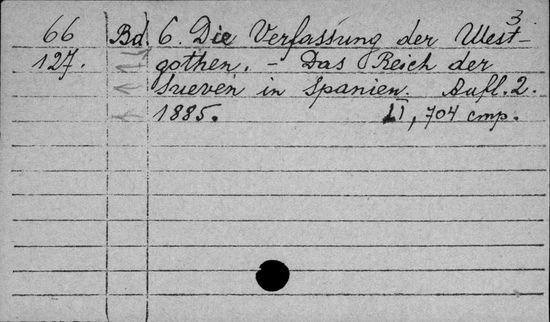 3
66 Bd. 6. Die Verfassung der West-
127. gothen. – Das Reich der
Sueven in Spanien. Aufl. 2.
1885. LI, 704 стр.